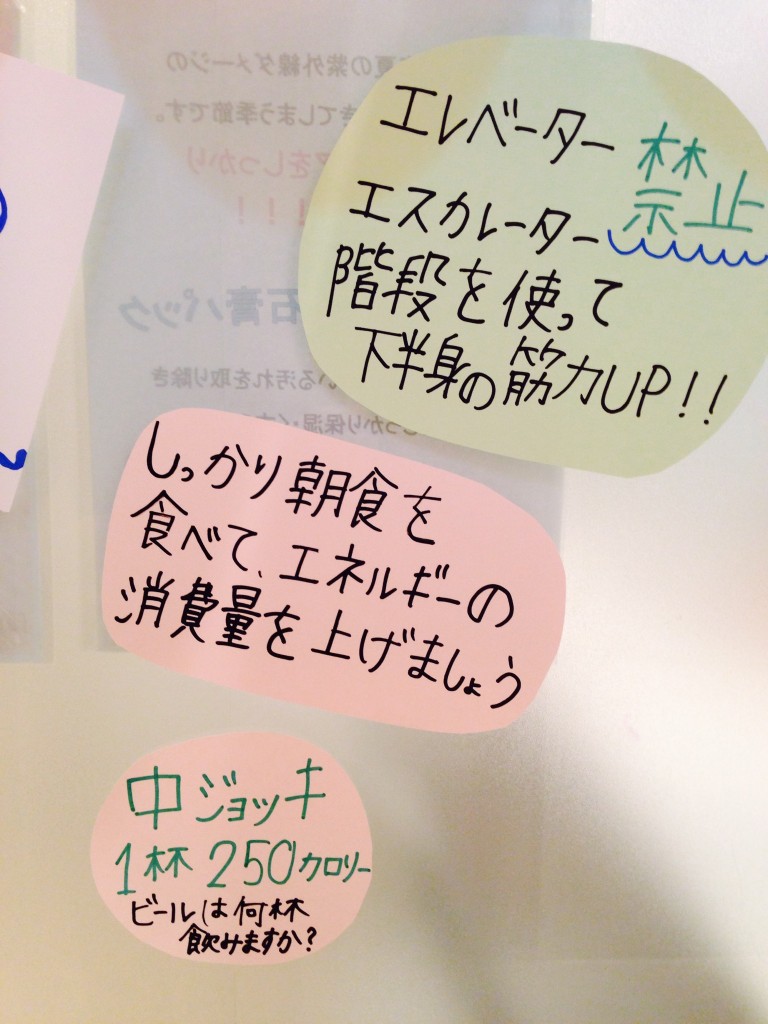 エレベーター 禁止
エスカレーター
階段を使って
下半身の筋力UP!!
しっかり朝食を
食べて、エネルギーの
消費量を上げましょう
中ジョッキ
1杯 250カロリー
ビールは何杯
飲みますか?
夏の紫外線ダメージの
きてしまう季節です。
をしっかり
!!!
石膏パック
いる汚れを取り除き
しっかり保湿・